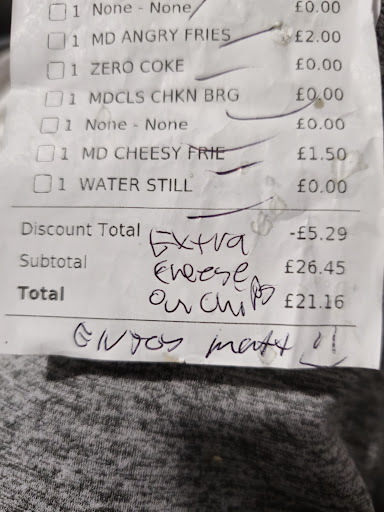 1 None - None £0.00
1 MD ANGRY FRIES £2.00
1 ZERO COKE £0.00
1 MDCLS CHKN BRG £0.00
1 None - None £0.00
1 MD CHEESY FRIE £1.50
1 WATER STILL £0.00
Discount Total -£5.29
Subtotal £26.45
Total £21.16
Extra
cheese
on chips